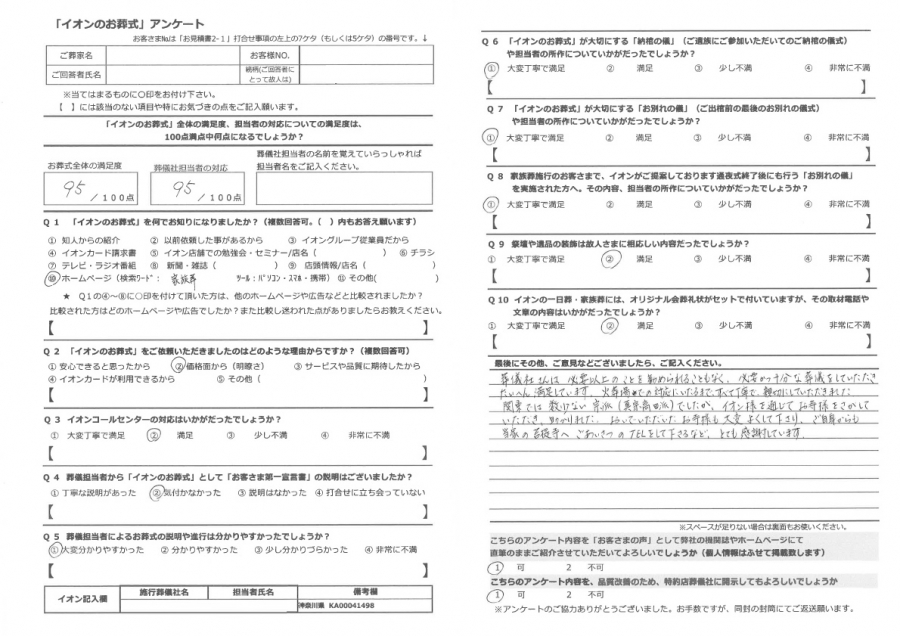 「イオンのお葬式」アンケート
お客さまNo.は「お見積書2-1」打合せ事項の左上の7ケタ（もしくは5ケタ）の番号です。↓
ご葬家名
お客様NO.
ご回答者氏名
続柄(ご回答者に
とって故人は)
※当てはまるものに○印をお付け下さい。
【　】には該当のない項目や特にお気づきの点をご記入願います。
「イオンのお葬式」全体の満足度、担当者の対応についての満足度は、
100点満点中何点になるでしょうか？
お葬式全体の満足度
95 /100点
葬儀社担当者の対応
95 /100点
葬儀社担当者の名前を覚えていらっしゃれば
担当者名をご記入ください。
Q 1 「イオンのお葬式」を何でお知りになりましたか？（複数回答可。（　）内もお答え願います）
① 知人からの紹介　② 以前依頼した事があるから　③ イオングループ従業員だから
④ イオンカード請求書　⑤ イオン店舗での勉強会・セミナー/店名（　）　⑥ チラシ
⑦ テレビ・ラジオ番組　⑧ 新聞・雑誌（　）　⑨ 店頭情報/店名（　）
⑩ ホームページ（検索ワード：家族葬　ツール：パソコン・スマホ・携帯）⑪ その他(　)
★ Q１の④～⑧に○印を付けて頂いた方は、他のホームページや広告などと比較されましたか？
比較された方はどのホームページや広告でしたか？また比較し迷われた点がありましたらお教えください。
【　】
Q 2 「イオンのお葬式」をご依頼いただきましたのはどのような理由からですか？（複数回答可）
① 安心できると思ったから　② 価格面から（明瞭さ）　③ サービスや品質に期待したから
④ イオンカードが利用できるから　⑤ その他（　）
【　】
Q 3 イオンコールセンターの対応はいかがだったでしょうか？
① 大変丁寧で満足　② 満足　③ 少し不満　④ 非常に不満
【　】
Q 4 葬儀担当者から「イオンのお葬式」として「お客さま第一宣言書」の説明はございましたか？
① 丁寧な説明があった　② 気付かなかった　③ 説明はなかった　④ 打合せに立ち会っていない
【　】
Q 5 葬儀担当者によるお葬式の説明や進行は分かりやすかったでしょうか？
① 大変分かりやすかった　② 分かりやすかった　③ 少し分かりづらかった　④ 非常に不満
【　】
イオン記入欄
施行葬儀社名　担当者氏名　備考欄
神奈川県 KA00041498
Q 6 「イオンのお葬式」が大切にする「納棺の儀」（ご遺族にご参加いただいてのご納棺の儀式）
や担当者の所作についていかがだったでしょうか？
① 大変丁寧で満足　② 満足　③ 少し不満　④ 非常に不満
【　】
Q 7 「イオンのお葬式」が大切にする「お別れの儀」（ご出棺前の最後のお別れの儀式）
や担当者の所作についていかがだったでしょうか？
① 大変丁寧で満足　② 満足　③ 少し不満　④ 非常に不満
【　】
Q 8 家族葬施行のお客さまで、イオンがご提案しております通夜式終了後にも行う「お別れの儀」
を実施された方へ。その内容、担当者の所作についていかがだったでしょうか？
① 大変丁寧で満足　② 満足　③ 少し不満　④ 非常に不満
【　】
Q 9 祭壇や遺品の装飾は故人さまに相応しい内容だったでしょうか？
① 大変丁寧で満足　② 満足　③ 少し不満　④ 非常に不満
【　】
Q 10 イオンの一日葬・家族葬には、オリジナル会葬礼状がセットで付いていますが、その取材電話や
文章の内容はいかがだったでしょうか？
① 大変丁寧で満足　② 満足　③ 少し不満　④ 非常に不満
【　】
最後にその他、ご意見などございましたら、ご記入ください。
葬儀社さんは 必要以上のことを勧められることもなく、必要かつ十分な葬儀をしていただき
たいへん満足しています。火葬場での対応にいたるまで、すべて丁寧で、親切にしていただきました。
関東では数少ない宗派（真宗高田派）でしたが、イオン様を通じてお寺様をさがして
いただき、助かりました。おいでいただいたお寺様も大変よくして下さり、ご自身からも
当家の菩提寺へ ごあいさつのTELをして下さるなど、とても感謝しています。
※スペースが足りない場合は裏面もお使いください。
こちらのアンケート内容を「お客さまの声」として弊社の機関誌やホームページにて
直筆のままご紹介させていただいてよろしいでしょうか（個人情報はふせて掲載致します）
1 可　2 不可
こちらのアンケート内容を、品質改善のため、特約店葬儀社に開示してもよろしいでしょうか
1 可　2 不可
※アンケートのご協力ありがとうございました。お手数ですが、同封の封筒にてご返送願います。